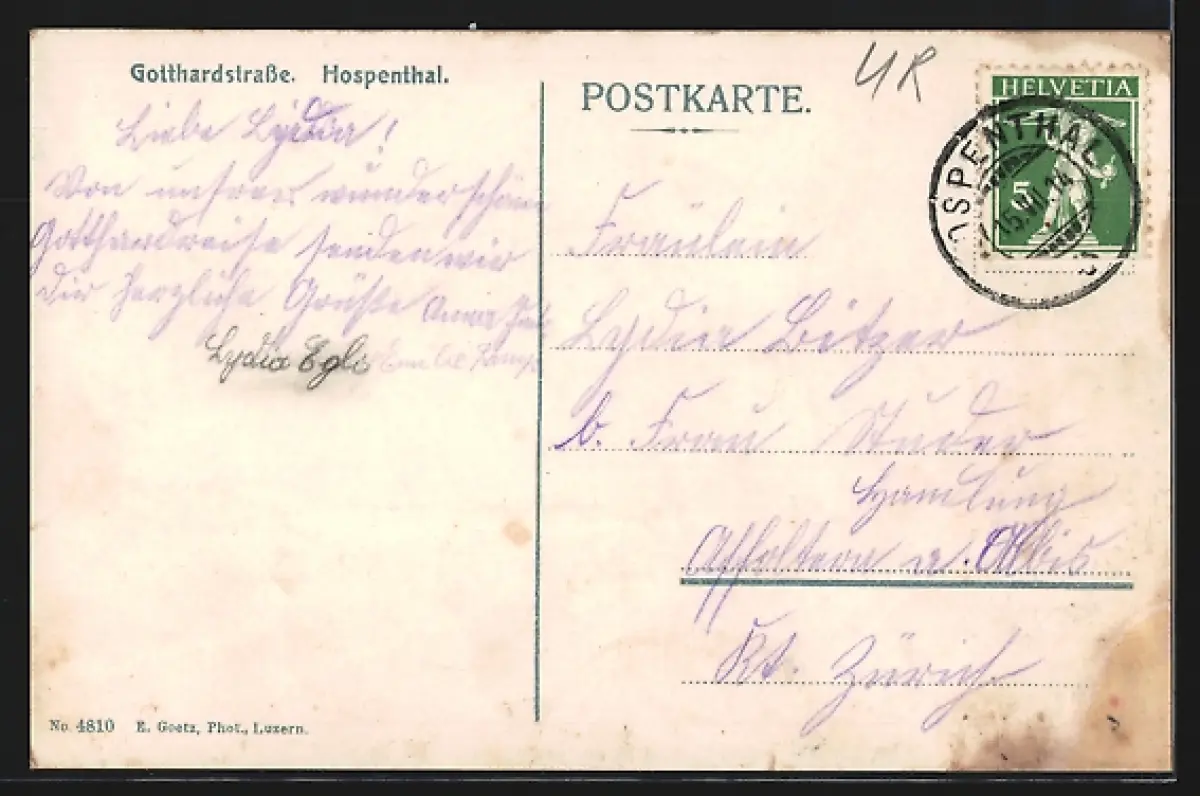 Gotthardstraße. Hospenthal.
Liebe Lydia!
Von unserer wunderschönen
Gotthardreise senden wir
dir herzliche Grüße Anna
Lydia Egli Emilie
No. 4810 E. Goetz, Phot., Luzern.
POSTKARTE.
UR
HELVETIA
5
HOSPENTHAL
15.VII.14
Fräulein
Lydia Bitzer
b. Frau Studer
Handlung
Affoltern a. Albis
Kt. Zürich